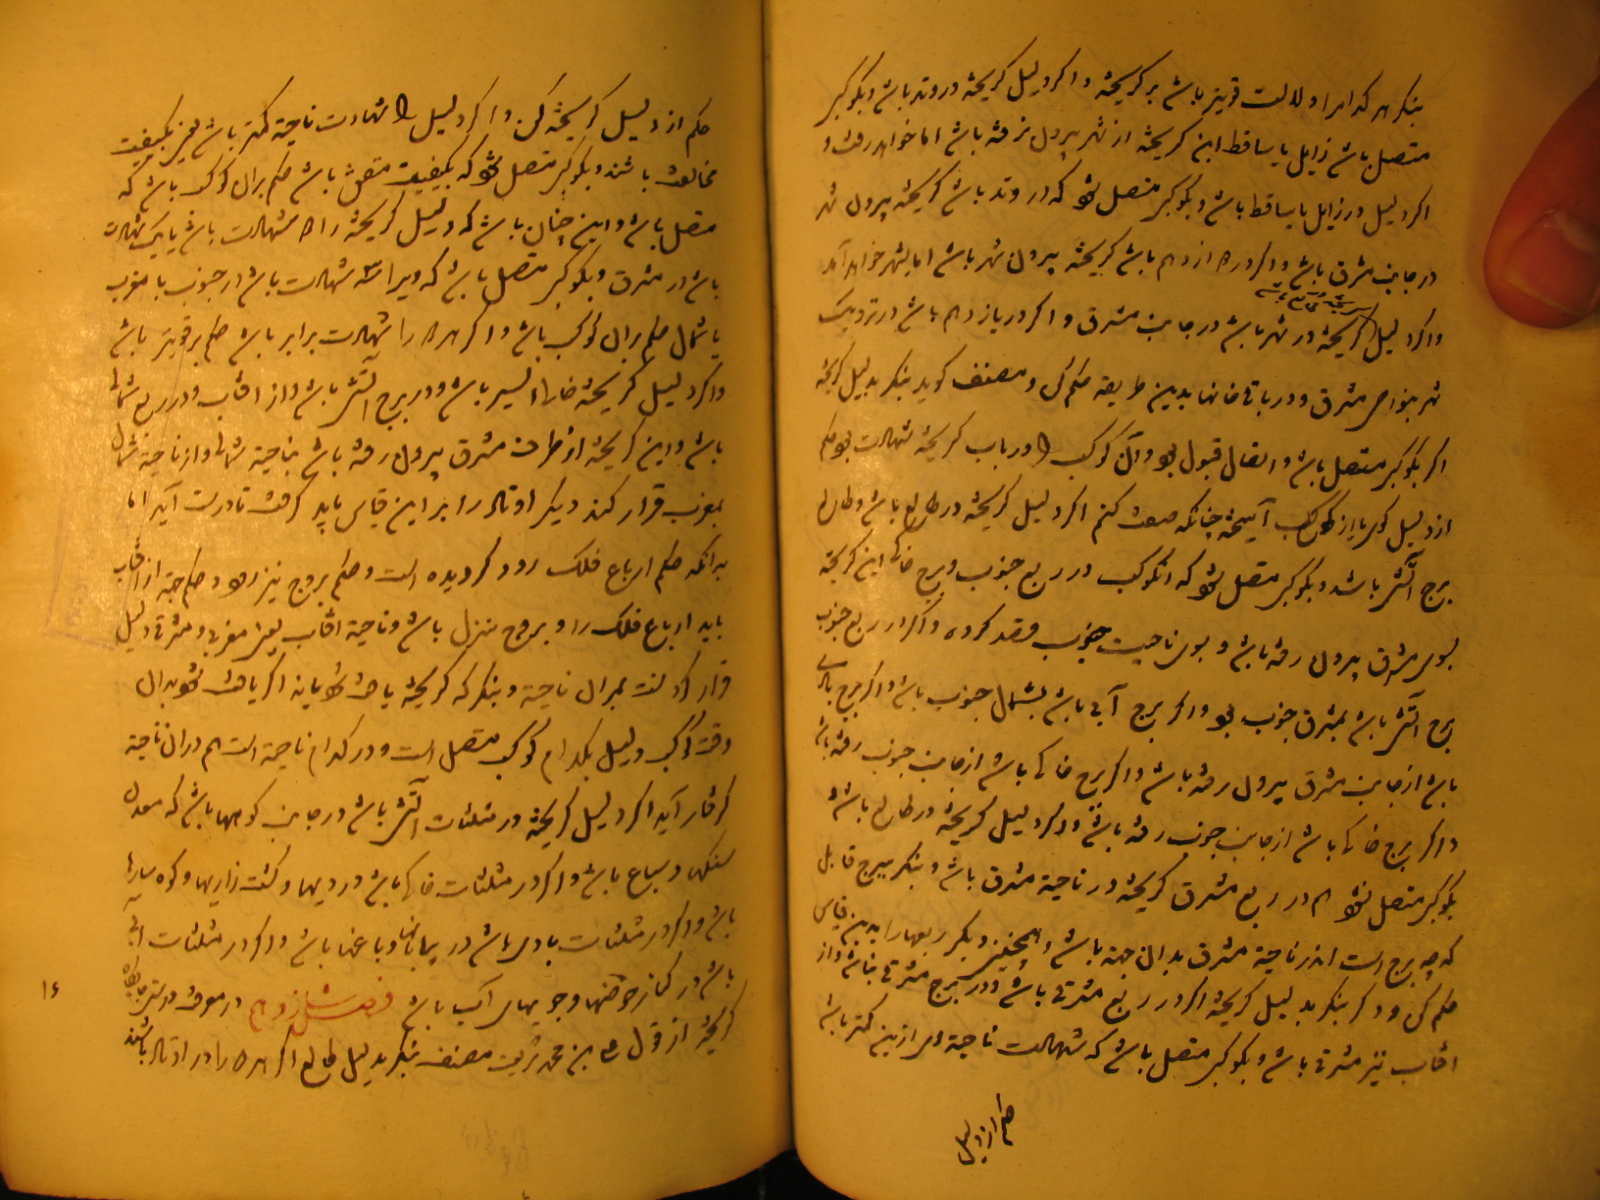 بنگر هر کدام را دلالت قویتر باشد بر گریخته و اگر دلیل گریخته در وتد باشد و بکوکبی
متصل باشد زایل یا ساقط این گریخته از شهر بیرون نرفته باشد اما خواهد رفت و
اگر دلیل در زایل یا ساقط باشد و بکوکبی متصل شود که در وتد باشد گریخته بیرون شهر
در جانب مشرق باشد و اگر در دهم باشد گریخته بیرون شهر باشد اما بشهر خواهد آمد
و اگر دلیل گریخته در شهر باشد در جانب مشرق و اگر در یازدهم باشد در نزدیک
شهر بنواحی مشرق و در باقی خانها بدین طریقه حکم کن و مصنف کوید بنگر بدلیل گریخته
اگر بکوکبی متصل باشد و اتصال قبول بود و آن کوکب را در باب گریخته شهادت بود حکم
از دلیل کوکب آمیخته چنانکه صفت کنم اگر دلیل گریخته در طالع باشد و طالع
برج آتشی باشد و بکوکبی متصل شود که آن کوکب در ربع جنوب و برج خاکی این گریخته
بسوی مشرق بیرون رفته باشد و بسوی ناحیت جنوب قصد کرده و اگر در ربع جنوب
برج آتشی باشد بمشرق جنوب بود و اگر برج آبی باشد بشمال جنوب باشد و اگر برج بادی
باشد از جانب مشرق بیرون رفته باشد و اگر برج خاکی باشد از جانب جنوب رفته باشد
و اگر برج خاکی باشد از جانب جنوب رفته باشد و اگر دلیل گریخته در طالع باشد و
بکوکبی متصل نشود هم در ربع مشرق گریخته در ناحیة مشرق باشد و بنگر ببرج قابل
که چه برج است اندر ناحیة مشرق بدان جهة باشد و همچنین دیگر ربعها را بدین قیاس
حکم کن و دیگر بنگر بدلیل گریخته اگر در ربع مشرقی باشد و در برج مشرقی باشد و از
آفتاب نیز مشرقی باشد و بکوکبی متصل باشد که شهادت ناحیة وی ازین کمتر باشد
حکم از دلیل
حکم از دلیل گریخته کن و اگر دلیل را شهادت ناحیة کمتر باشد یعنی بکیفیت
مخالف باشند و بکوکبی متصل شود که بکیفیت متفق باشد حکم بران کوکب باشد که
متصل باشد و این چنان باشد که دلیل گریخته را شهادت باشد یا یک شهادت
باشد در مشرق و بکوکبی متصل باشد که ویرا سه شهادت باشد در جنوب یا مغرب
یا شمال حکم بران کوکب باشد و اگر هر دو را شهادت برابر باشد حکم بر قویتر باشد
و اگر دلیل گریخته خالی السیر باشد و در برج آتشی باشد و از آفتاب و در ربع شمالی
باشد و این گریخته از طرف مشرق بیرون رفته باشد بناحیة شمالی و از ناحیة شمال
بمغرب قرار کند دیگر اوتاد را بر این قیاس باید گرفت تا درست آید اما
بدانکه حکم ارباع فلک رود کردیده است و حکم بروج نیز و حکم جهة از آفتاب
باید ارباع فلک را و بروج منزل باشد و ناحیة آفتاب یعنی مغربی و مشرقی دلیل
قرار کردنست بران ناحیة و بنگر که گریخته یافت شود یا نه اگر یافت شود بدان
وقت کوکب دلیل بکدام کوکب متصل است و در کدام ناحیة است هم دران ناحیة
گرفتار آید اگر دلیل گریخته در مثلثات آتشی باشد در جانب کوهها باشد که معدن
سنگها و سباع باشد و اگر در مثلثات خاکی باشد در دیهها و کشت زارها و کوه
باشد و اگر در مثلثات بادی باشد در بیابانها و باغها باشد و اگر در مثلثات آبی
باشد در کنار حوضها و جویهای آب باشد فصل شانزدهم در معرفت
گریخته از قول علی بن محمد شریف مصنف بنگر بدلیل طالع اگر هر دو را در اوتاد باشند
۱۶